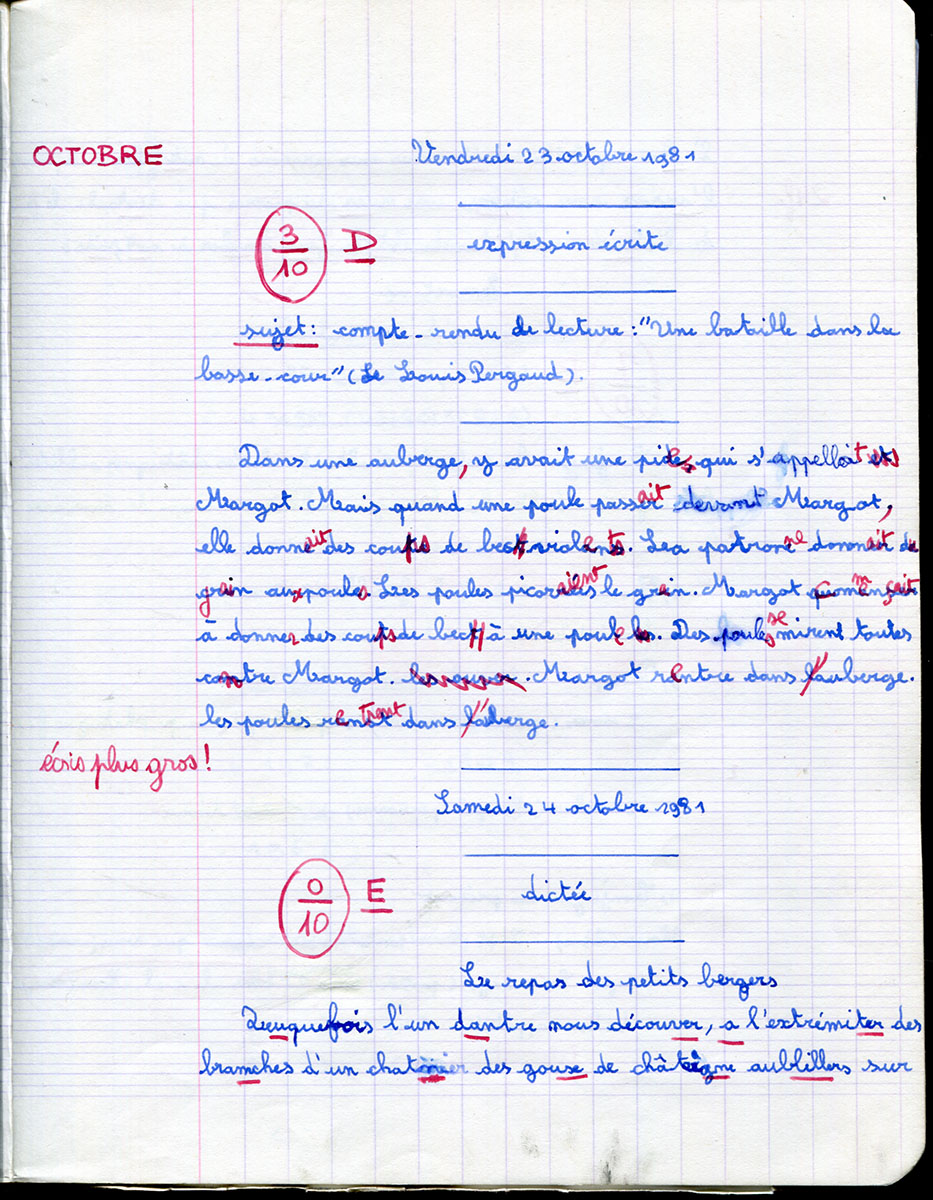 OCTOBRE
Vendredi 23 octobre 1981
3/10 D
expression écrite
sujet: compte-rendu de lecture: "Une bataille dans la
basse-cour" (de Louis Pergaud).
Dans une auberge, y avait une pies, qui s'appellait
Margot. Mais quand une poule passait devant Margot,
elle donnait des coups de bec violents. La patronne donnait du
grain aux poules. Les poules picoraient le grain. Margot commençait
à donner des coups de bec à une poule. Des poules se mirent toutes
contre Margot. Margot rentre dans l'auberge.
les poules rentrent dans l'auberge.
écris plus gros!
Samedi 24 octobre 1981
0/10 E
dictée
Le repas des petits bergers
l'un dantre nous découver, a l'extrémiter des
bramches d'un des gouse de châteigne aublillers sur